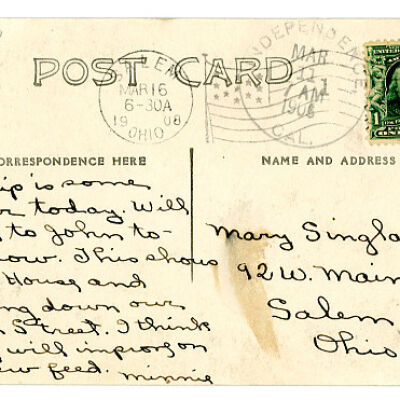 POST CARD
SALEM
MAR 16
6-30A
1908
OHIO
INDEPENDENCE
MAR
11
7 AM
1908
CAL.
1
CORRESPONDENCE HERE
NAME AND ADDRESS
ip is some
r today. Will
to John to-
ow. This shows
House and
ng down our
n Street. I think
will improve on
ew feed. Minnie
Mary Singla
92 W. Main
Salem
Ohio